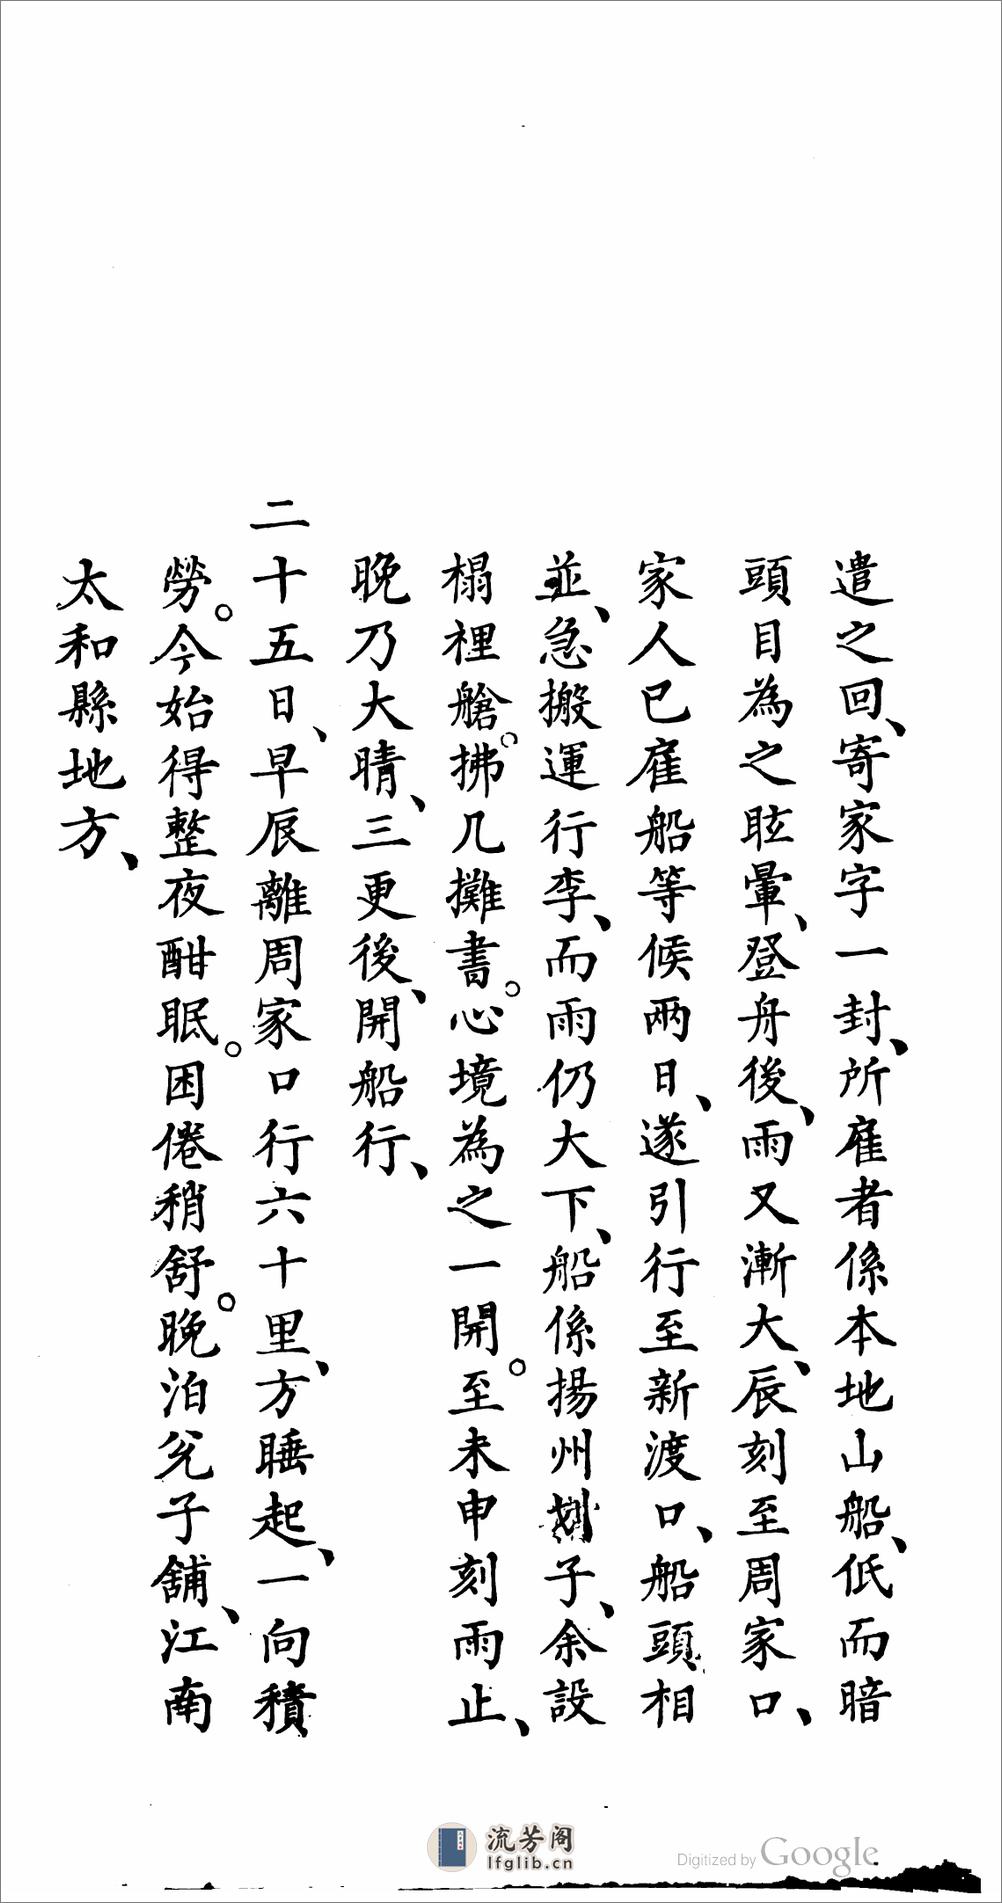 遣之回、寄家字一封、所雇者係本地山船、低而暗
頭目為之眩暈、登舟後、雨又漸大、辰刻至周家口、
家人已雇船等候兩日、遂引行至新渡口、船頭相
並、急搬運行李、而雨仍大下、船係揚州划子、余設
榻裡艙。拂几攤書。心境為之一開。至未申刻雨止、
晚乃大晴、三更後、開船行、
二十五日、早辰離周家口行六十里、方睡起、一向積
勞。今始得整夜酣眠。困倦稍舒。晚泊兊子舖、江南
太和縣地方、
流芳阁
lfglib.cn
Digitized by Google